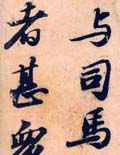 与司馬
者甚眾